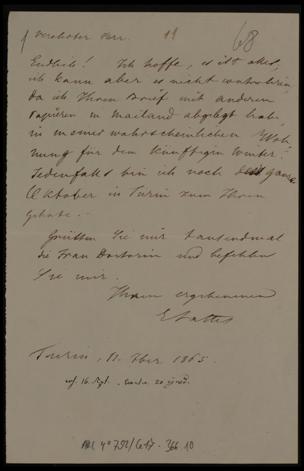 Verehrter Herr. 19 68
Endlich! Ich hoffe, es ist alles,
ich kann aber es nicht controliren
da ich Ihren Brief mit anderen
Papieren in Mailand abgelegt habe,
in meiner wahrscheinlichen Woh-
nung für den künftigen Winter.
Jedenfalls bin ich noch den ganzen
Oktober in Turin zum Ihrem
Gebote. –
Grüssen Sie mir tausendmal
die Frau Doctorin und befehlen
Sie mir.
Ihrem ergebenen
Turin, 11. 7ber 1865.